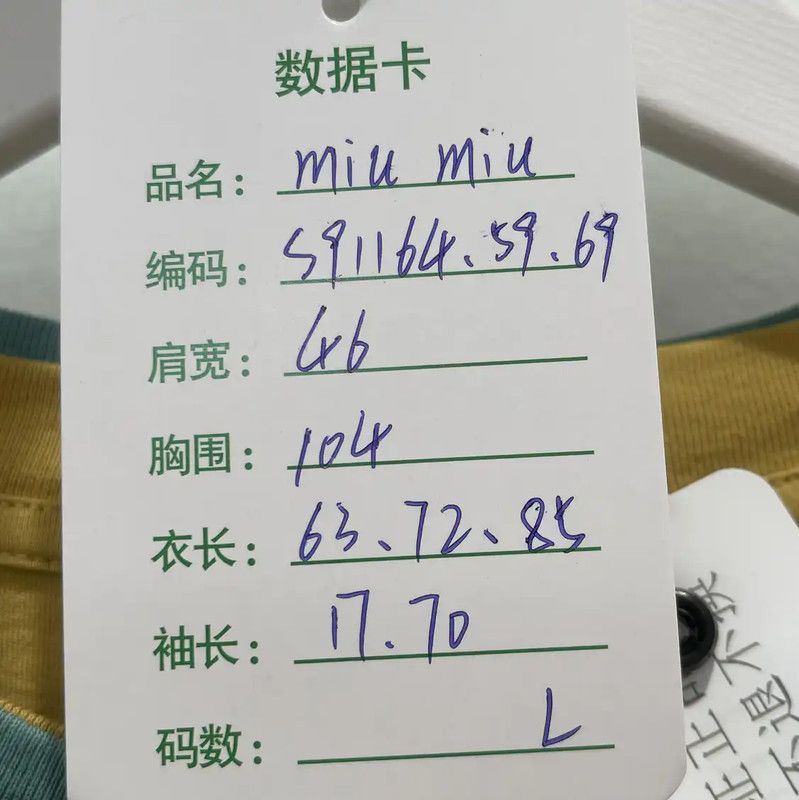 数据卡
品名: miu miu
编码: S91164、59、69
肩宽: 46
胸围: 104
衣长: 63、72、85
袖长: 17.70
码数: L
非正
不退不换